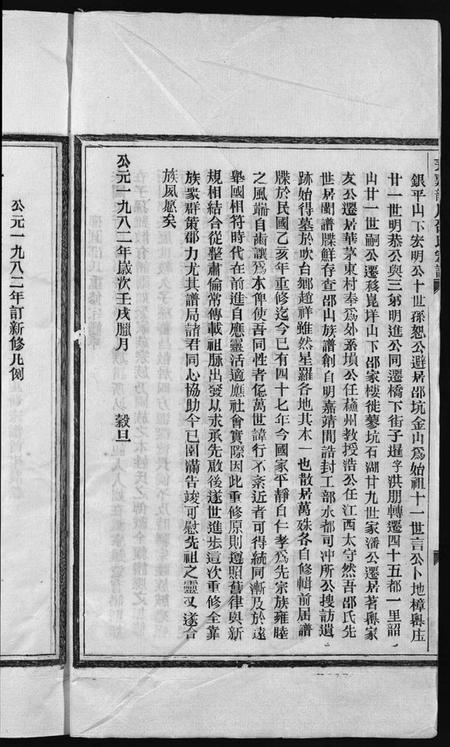 銀平山下宏明公十世孫恕公避居邵坑金山為始祖十一世言公卜地樟嶴庄
廿一世明恭公與三弟明進公同遷橋下街子暹孚洪朋轉遷四十五都一里韶
山廿一世嗣公遷移崑垟山下邵家樓徙蓼坑石湖廿九世家潘公遷居著嶴家
友公遷居華茅東村奉為外系塤公任蘇州教授浩公任江西太守然吾邵氏先
世居蘭譜牒鮮存查邵山族譜創自明嘉靖間誥封工部水都司冲所公搜訪遺
跡始得墓於吹台鄉趙祥雖然星羅各地其本一也散居萬硃各自修輯前屆譜
牒於民國乙亥年重修迄今已有四十七年今國家平靜自仁孝為先宗族雍睦
之風端自歯讓為本俾使吾同姓者傳萬世諱行不紊近者可得統同漸及於遠
舉國相符時代在前進自應靈活適應社會實際因此重修原則遵照舊律與新
規相結合從整肅倫常傳載祖脉出發以求承先啟後遂世進步這次重修全靠
族衆群策郡力尤其譜局諸君同心協助今已圓滿告竣可慰先祖之靈又遂合
族夙愿矣
公元一九八二年歲次壬戌臘月 穀旦
公元一九八二年訂新修凡例